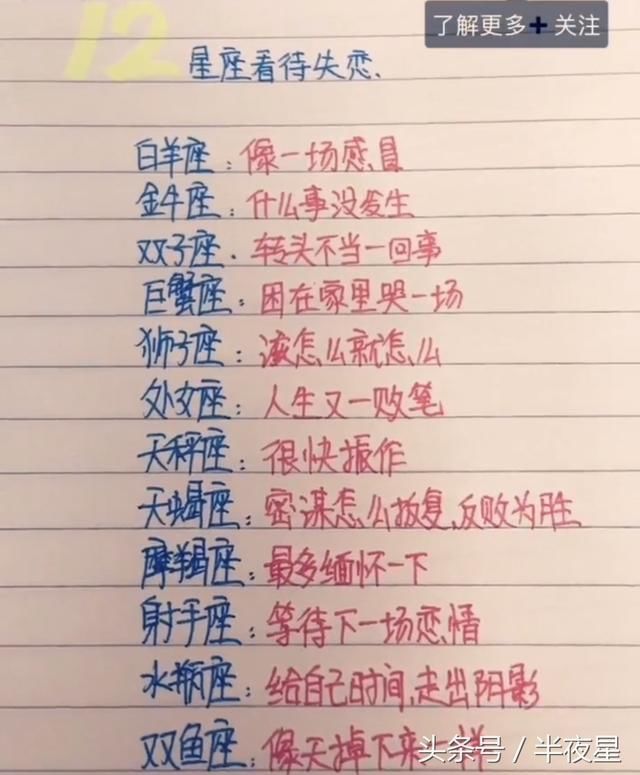 了解更多+关注
12
星座看待失恋.
白羊座：像一场感冒
金牛座：什么事没发生
双子座．转头不当一回事
巨蟹座：困在家里哭一场
狮子座：该怎么就怎么
处女座：人生又一败笔
天秤座：很快振作
天蝎座：密谋怎么报复,反败为胜
摩羯座：最多缅怀一下
射手座：等待下一场恋情
水瓶座：给自己时间,走出阴影
双鱼座：像天掉下来一样
头条号／半夜星